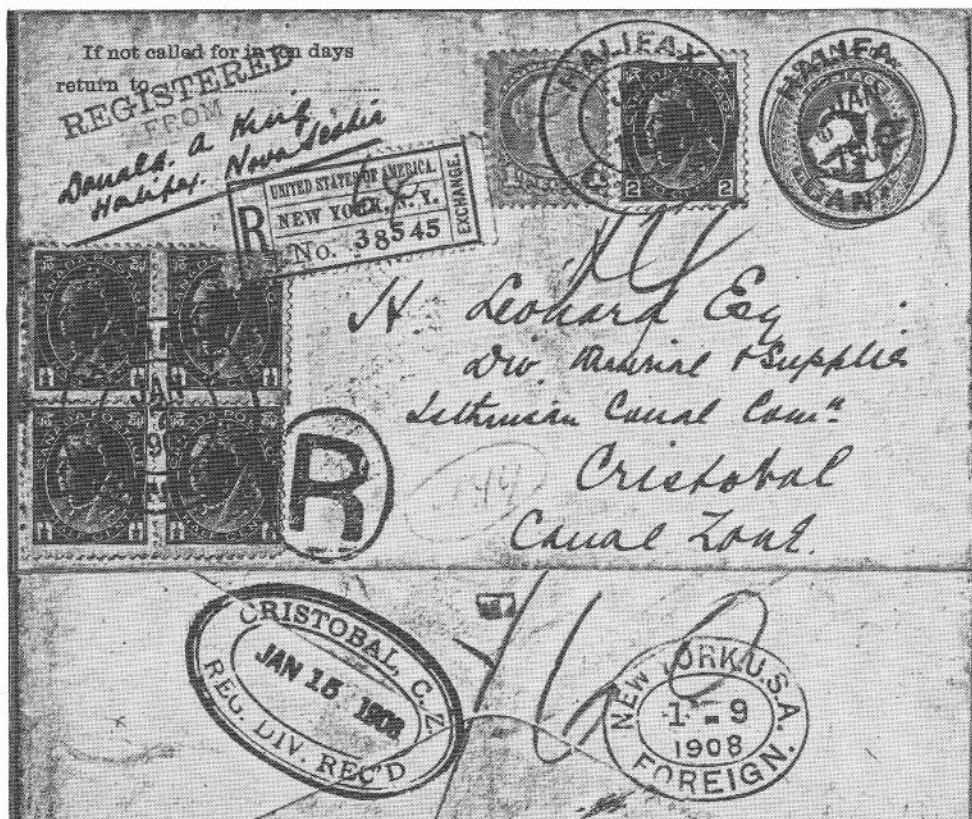 If not called for in ten days
return to
REGISTERED
FROM
Donald. A King
Halifax. Nova Scotia
R
UNITED STATES OF AMERICA.
NEW YORK, N. Y.
No. 38545
EXCHANGE.
HALIFAX
2 2
HALIFA
JAN
CAN
H Leonard Esq
Div Material & Supplies
Isthmian Canal Comn
Cristobal
Canal Zone.
CANADA POSTAGE
JAN
9
R
CRISTOBAL, C. Z.
JAN 15 1908
REG. DIV. REC'D
NEW YORK, U.S.A.
1-9
1908
FOREIGN.